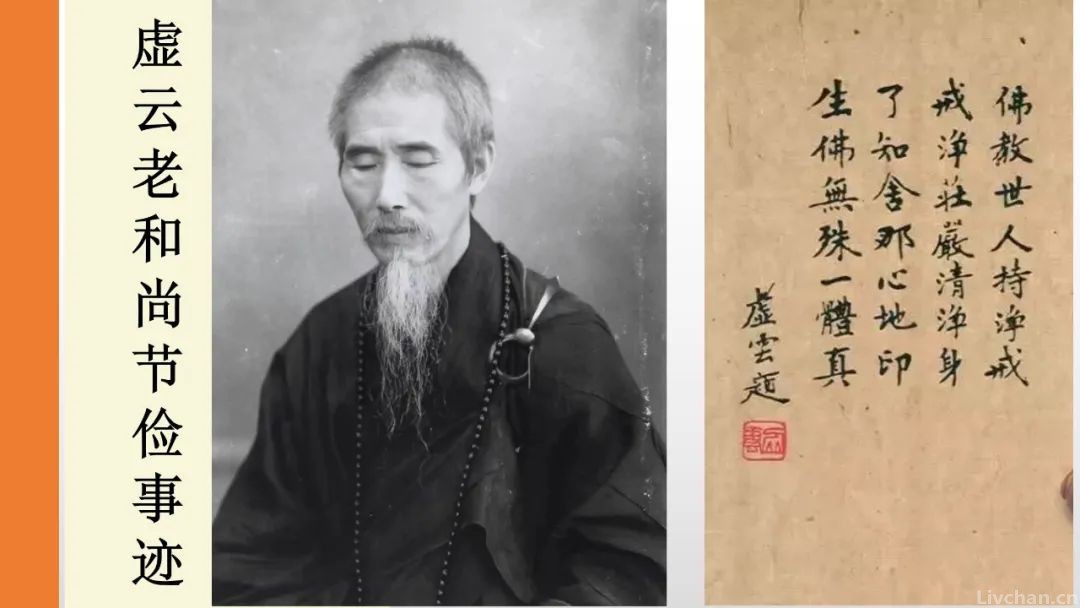 虚云老和尚节俭事迹
佛教世人持淨戒
戒淨莊嚴清淨身
了知舍那心地印
生佛無殊一體真
虛雲題
Livchan.cn